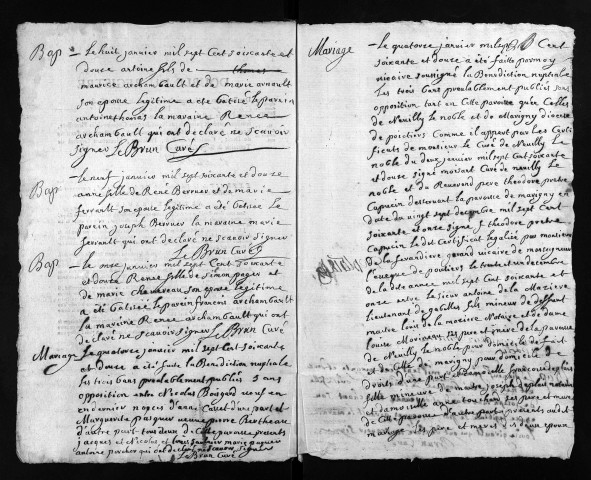 Bap
Le huit janvier mil sept Cent soixante et
douze antoine fils de thomas
maurice archambault et de marie arnault
son epouse legitime a eté batisé le parein
antoine thomas la maraine Renee
archambault qui ont declaré ne scavoir
signer Le Brun Curé
Bap
Le neuf janvier mil sept soixante et douze
anne fille de René Berruer et de marie
ferrault son epouse legitime a été batisee Le
parein joseph Berruer la maraine marie
ferrault qui ont declare ne scavoir signer
Le Brun Curé
Bap
Le onze janvier mil sept Cent soixante
et douze Renée fille de simon pager et
de marie chavereau son epouse legitime
a été batisée Le parein francois archambault
la maraine Renée archambault qui ont
declaré ne scavoir signer Le Brun Curé
Mariage
Le quatorze janvier mil sept Cent soixante
et douze a été faite la Benediction nuptiale
les trois bans prealablement publiés sans
opposition entre Nicolas veuf en
dernier nopces d'anne d'une part et
Marguerite veuve pierre Bertheau
d'autre part tous deux de Cette paroisse presents
jacques et Nicolas et marie
antoine porcher qui ont declaré ne scavoir signer
Le Brun Curé
Mariage
Le quatorze janvier mil sept Cent
soixante et douze a été faitte par moy
vicaire soussigné la Benediction nuptiale
Les trois bans prealablement publiés sans
opposition tant en Cette paroisse qu'en Celles
de Neuilly le noble et de Marigny diocese
de poictiers Comme il appert par les Certi
ficats de monsieur le Curé de Neuilly le
noble du deux janvier mil sept Cent soixante
et douze signé Curé de Neuilly le
noble et du Reverend pere theodore pretre
Capucin desservant la paroisse de marigny en
date du vingt sept decembre mil sept Cent
soixante et onze signé f. theodore pretre
Capucin Le dit Certificat legalisé par monsieur
de la grand vicaire de monseigneur
l'eveque de poitiers le trente et un decembre
de la dite annee mil sept Cent soixante et
onze entre le sieur antoine de la Maziere
lieutenant de gabelles fils mineur de deffunt
maitre louis de la Notaire et de dame
louise ses pere et mere de la paroisse
de Neuilly le noble pour domicile de fait
et de Celle de marigny pour domicile de
droit d'une part et demoiselle francoise
fille mineure de maitre joseph notaire
et damoiselle anne ses pere et mere
de Cette paroisse d'autre part presents audit
mariage les pere et meres des deux epoux